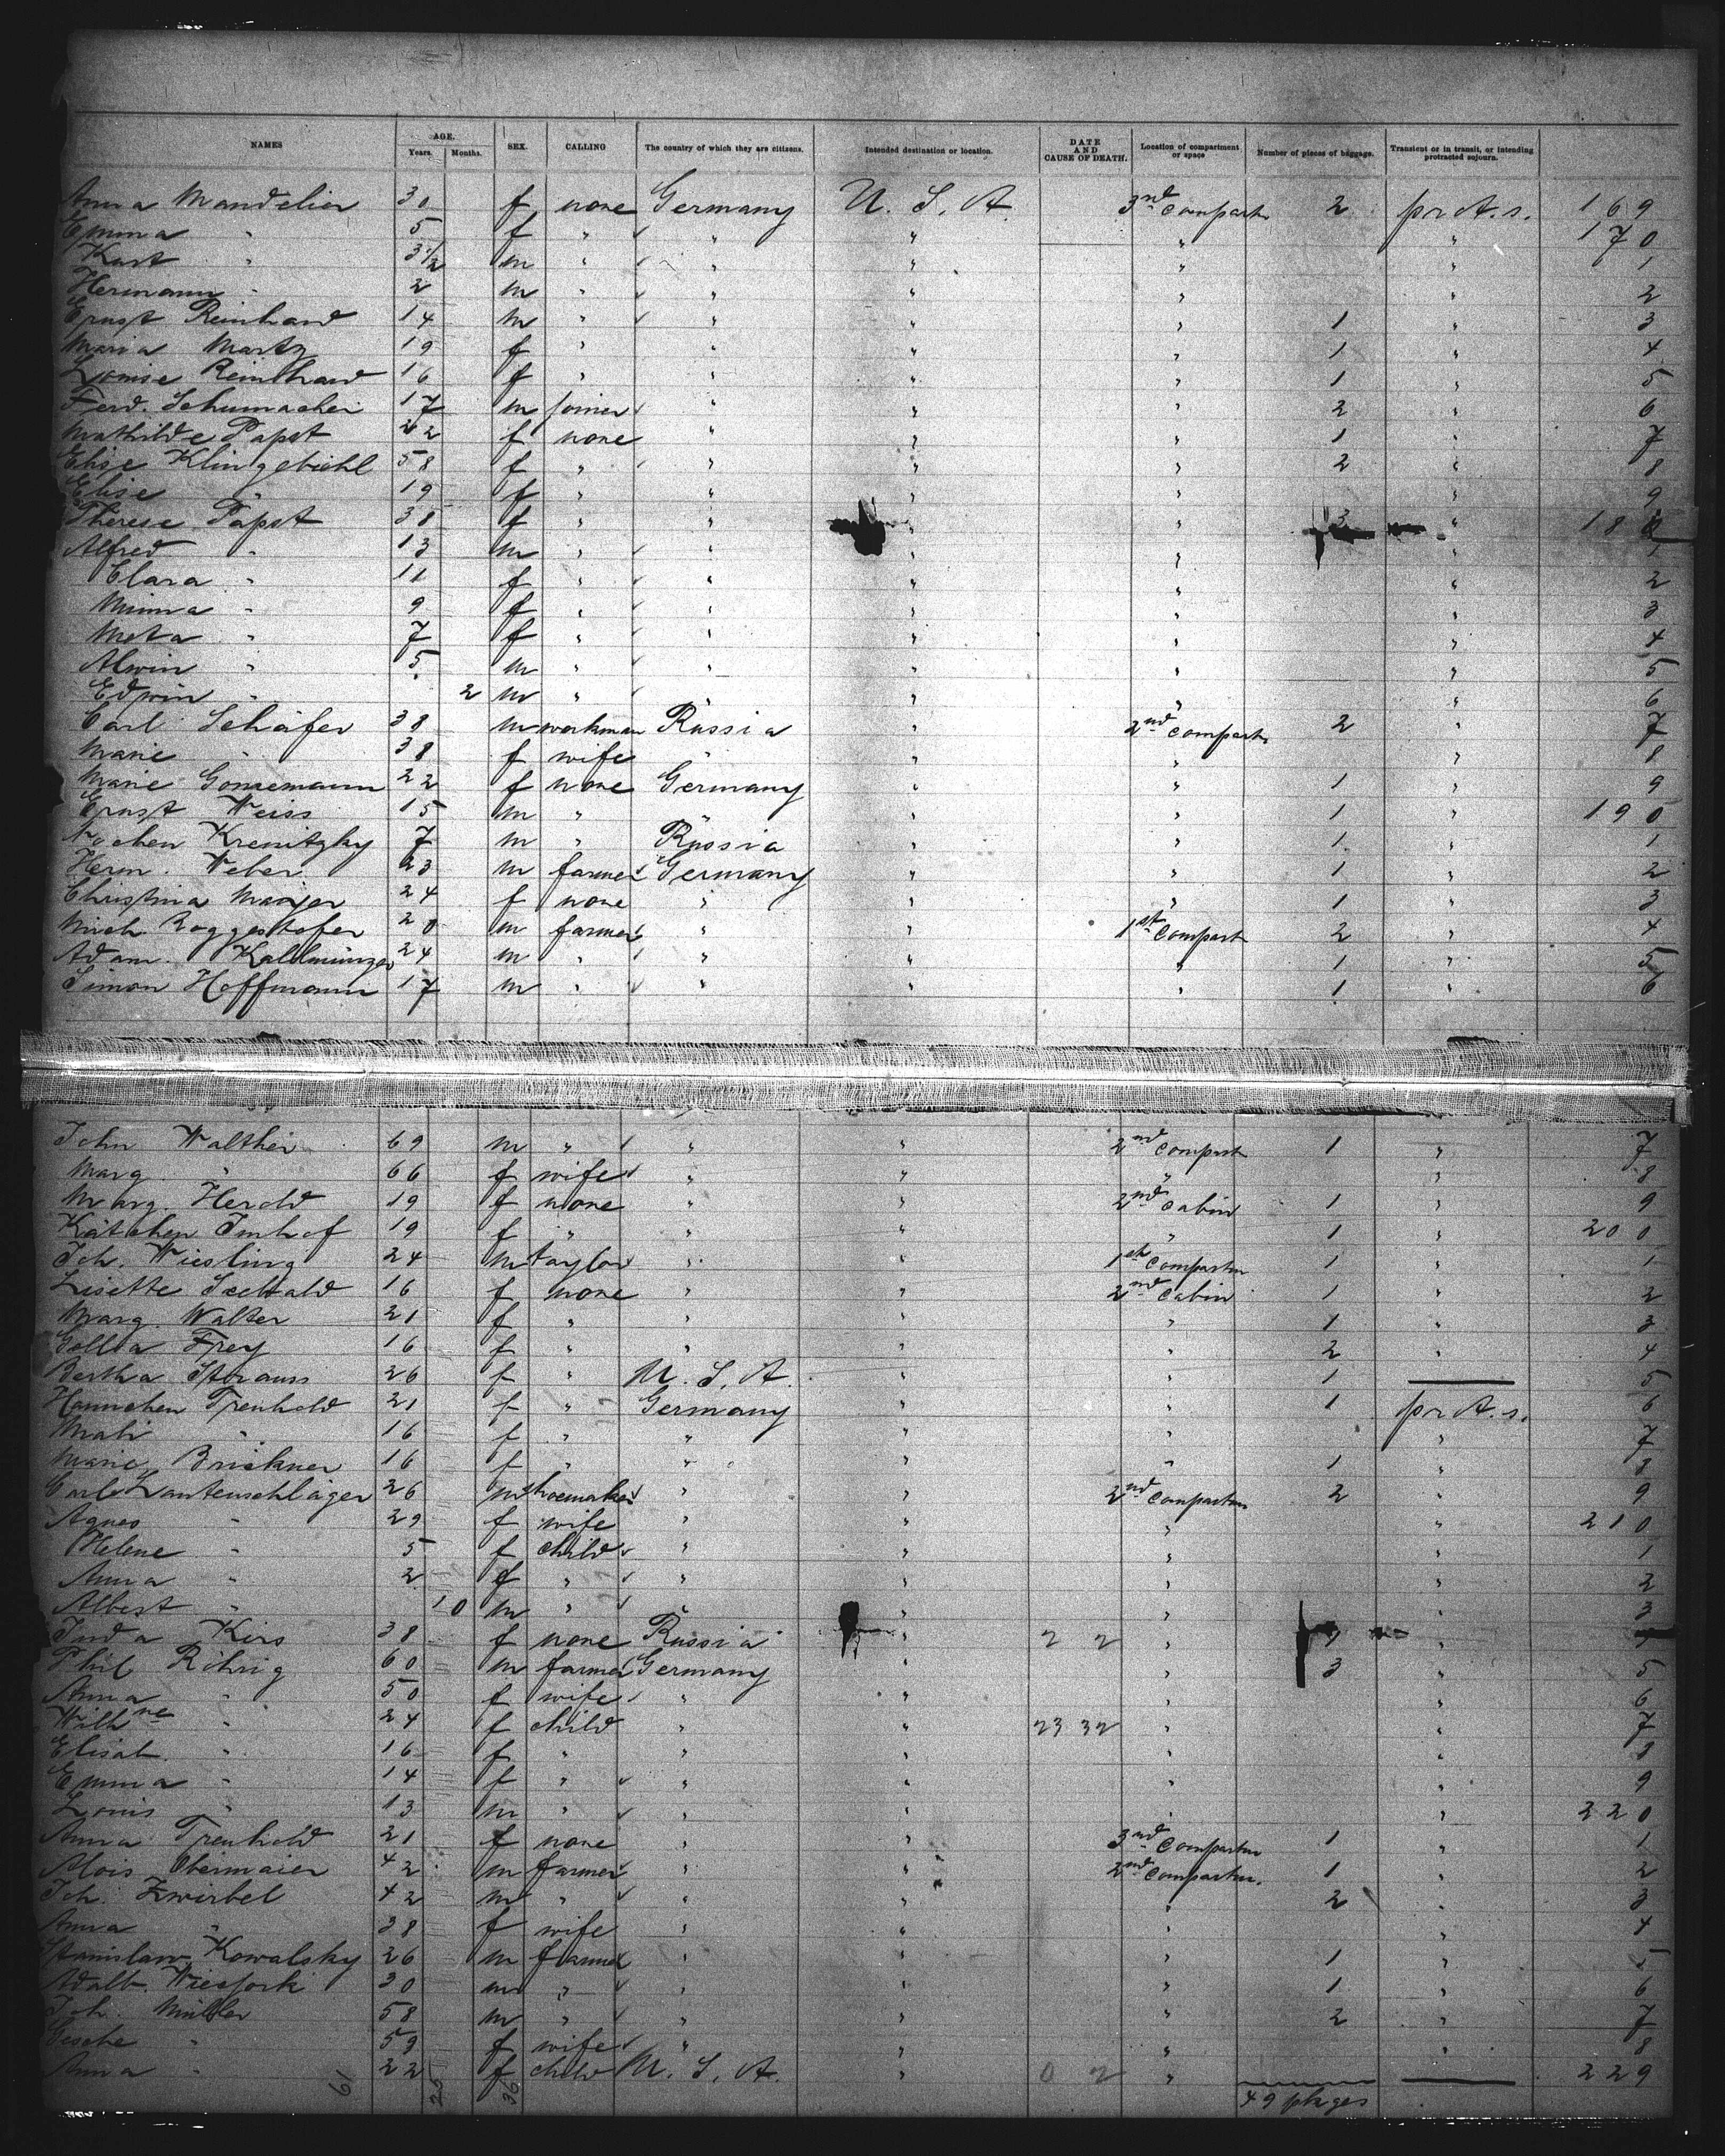 NAMES AGE. Years. Months. SEX. CALLING The country of which they are citizens. Intended destination or location. DATE AND CAUSE OF DEATH. Location of compartment or space Number of pieces of baggage. Transient or in transit, or intending protracted sojourn.
Anna Mandelier 30 f none Germany U. S. A. 3nd compart. 2 pr A. s. 169
Emma " 5 f " " " " " 170
Kurt " 3 1/2 m " " " " " 1
Hermann " 2 m " " " " " 2
Ernst Reinhard 14 m " " " " 1 " 3
Maria Martz 19 f " " " " 1 " 4
Louise Reinhard 16 f " " " " 1 " 5
Ferd. Schumacher 17 m joiner " " " 2 " 6
Mathilde Papst 22 f none " " " 1 " 7
Elise Klingebiehl 58 f " " " " 2 " 8
Elise " 19 f " " " " " 9
Therese Papst 38 f " " " " 3 " 180
Alfred " 13 m " " " " " 1
Clara " 11 f " " " " " 2
Minna " 9 f " " " " " 3
Meta " 7 f " " " " " 4
Alwin " 5 m " " " " " 5
Edwin " 2 m " " " " " 6
Carl Schäfer 38 m workman Russia " 2nd compart. 2 " 7
Marie " 38 f wife " " " " 8
Marie 22 f none Germany " " 1 " 9
Ernst Weiss 15 m " " " " 1 " 190
Krenitzky 7 m " Russia " " 1 " 1
Herm. Weber 23 m farmer Germany " " 1 " 2
Christina 24 f none " " " 1 " 3
Mich. 20 m farmer " " 1st compart 2 " 4
Adam Kallmünzer 24 m " " " " 1 " 5
Simon Hoffmann 17 m " " " " 1 " 6
John Walther 69 m " " " 2nd compart 1 " 7
Marg. " 66 f wife " " " " 8
Marg. Herold 19 f none " " 2nd cabin 1 " 9
Kätchen Imhof 19 f " " " " 1 " 200
Joh. Wiesling 24 m taylor " " 1st compartm 1 " 1
Lisette Seebald 16 f none " " 2nd cabin 1 " 2
Marg. Walter 21 f " " " " 1 " 3
Frey 16 f " " " " 2 " 4
Bertha Strauss 26 f " U. S. A. " " 1 — 5
Hannchen Trenhold 21 f " Germany " " 1 pr A. s. 6
Mali " 16 f " " " " " 7
Marie Brickner 16 f " " " " 1 " 8
Carl Lautenschläger 26 m shoemaker " " 2nd compartm 2 " 9
Agnes " 29 f wife " " " " 210
Helene " 5 f child " " " " 1
Anna " 2 f " " " " " 2
Albert " 10 m " " " " " 3
Kirs 38 f none Russia " 2 2 " "
Phil Röhrig 60 m farmer Germany " " 3 " 5
Anna " 50 f wife " " " " 6
Wilhne " 24 f child " " 23 32 " " 7
Elisab. " 16 f " " " " " 8
Emma " 14 f " " " " " 9
Louis " 13 m " " " " " 220
Anna Trenhold 21 f none " " 3nd compartm 1 " 1
Alois Obermaier 42 m farmer " " 2nd compartm. 1 " 2
Joh. Zwirbel 42 m " " " " 2 " 3
Anna " 38 f wife " " " " 4
Stanislaw Kowalsky 26 m farmer " " " 1 " 5
Adalb. 30 m " " " " 1 " 6
Joh. Müller 58 m " " " " 2 " 7
Gesche " 59 f wife " " " " 8
Anna " 22 f child U. S. A. " 0 2 " — 229
61 25 36 49 pkges